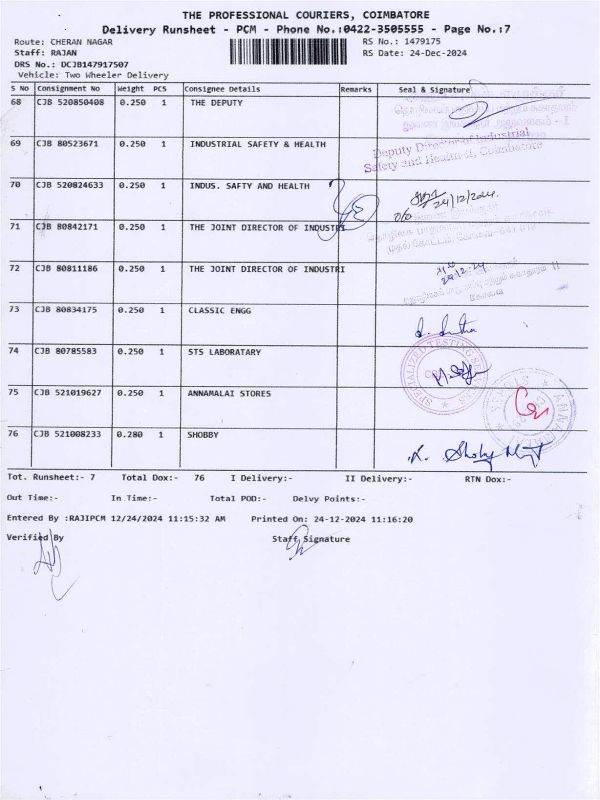 THE PROFESSIONAL COURIERS, COIMBATORE
Delivery Runsheet - PCM - Phone No.:0422-3505555 - Page No.:7
Route: CHERAN NAGAR RS No.: 1479175
Staff: RAJAN RS Date: 24-Dec-2024
DRS No.: DCJB147917507
Vehicle: Two Wheeler Delivery
S No Consignment No Weight PCS Consignee Details Remarks Seal & Signature
68 CJB 520850408 0.250 1 THE DEPUTY
69 CJB 80523671 0.250 1 INDUSTRIAL SAFETY & HEALTH
Deputy Director of Industrial
Safety and Health-II, Coimbatore
70 CJB 520824633 0.250 1 INDUS. SAFTY AND HEALTH
24/12/2024
71 CJB 80842171 0.250 1 THE JOINT DIRECTOR OF INDUSTRI
72 CJB 80811186 0.250 1 THE JOINT DIRECTOR OF INDUSTRI
24.12.24
73 CJB 80834175 0.250 1 CLASSIC ENGG
74 CJB 80785583 0.250 1 STS LABORATARY
75 CJB 521019627 0.250 1 ANNAMALAI STORES
76 CJB 521008233 0.280 1 SHOBBY
Tot. Runsheet:- 7 Total Dox:- 76 I Delivery:- II Delivery:- RTN Dox:-
Out Time:- In Time:- Total POD:- Delvy Points:-
Entered By :RAJIPCM 12/24/2024 11:15:32 AM Printed On: 24-12-2024 11:16:20
Verified By Staff Signature